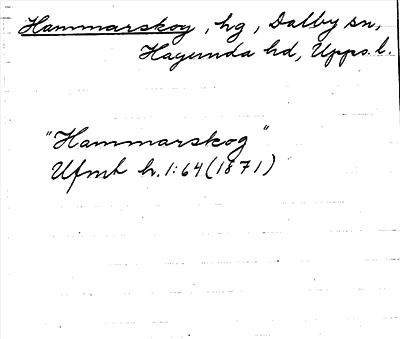 Hammarskog, hg, Dalby sn,
Hagunda hd, Upps. l.
"Hammarskog"
Ufmt h. 1:64 (1871)